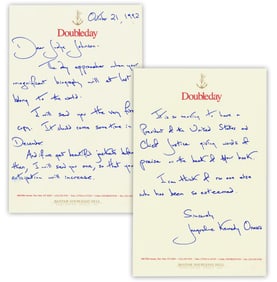 October 21, 1992
Doubleday
Dear Judge Johnson,
The day approaches when your
magnificent biography will at last
belong to the world.
I will send you the very first
copy. It should come sometime in
December.
And if we get beautiful jackets before
then, I will send you one, so that your
anticipation will increase.
BANTAM DOUBLEDAY DELL
Doubleday
It is so moving to have a
President of the United States and
Chief Justice giving words of
praise in the book & after book.
I can think of no one else
who has been so esteemed.
Sincerely
Jacqueline Kennedy Onassis
BANTAM DOUBLEDAY DELL